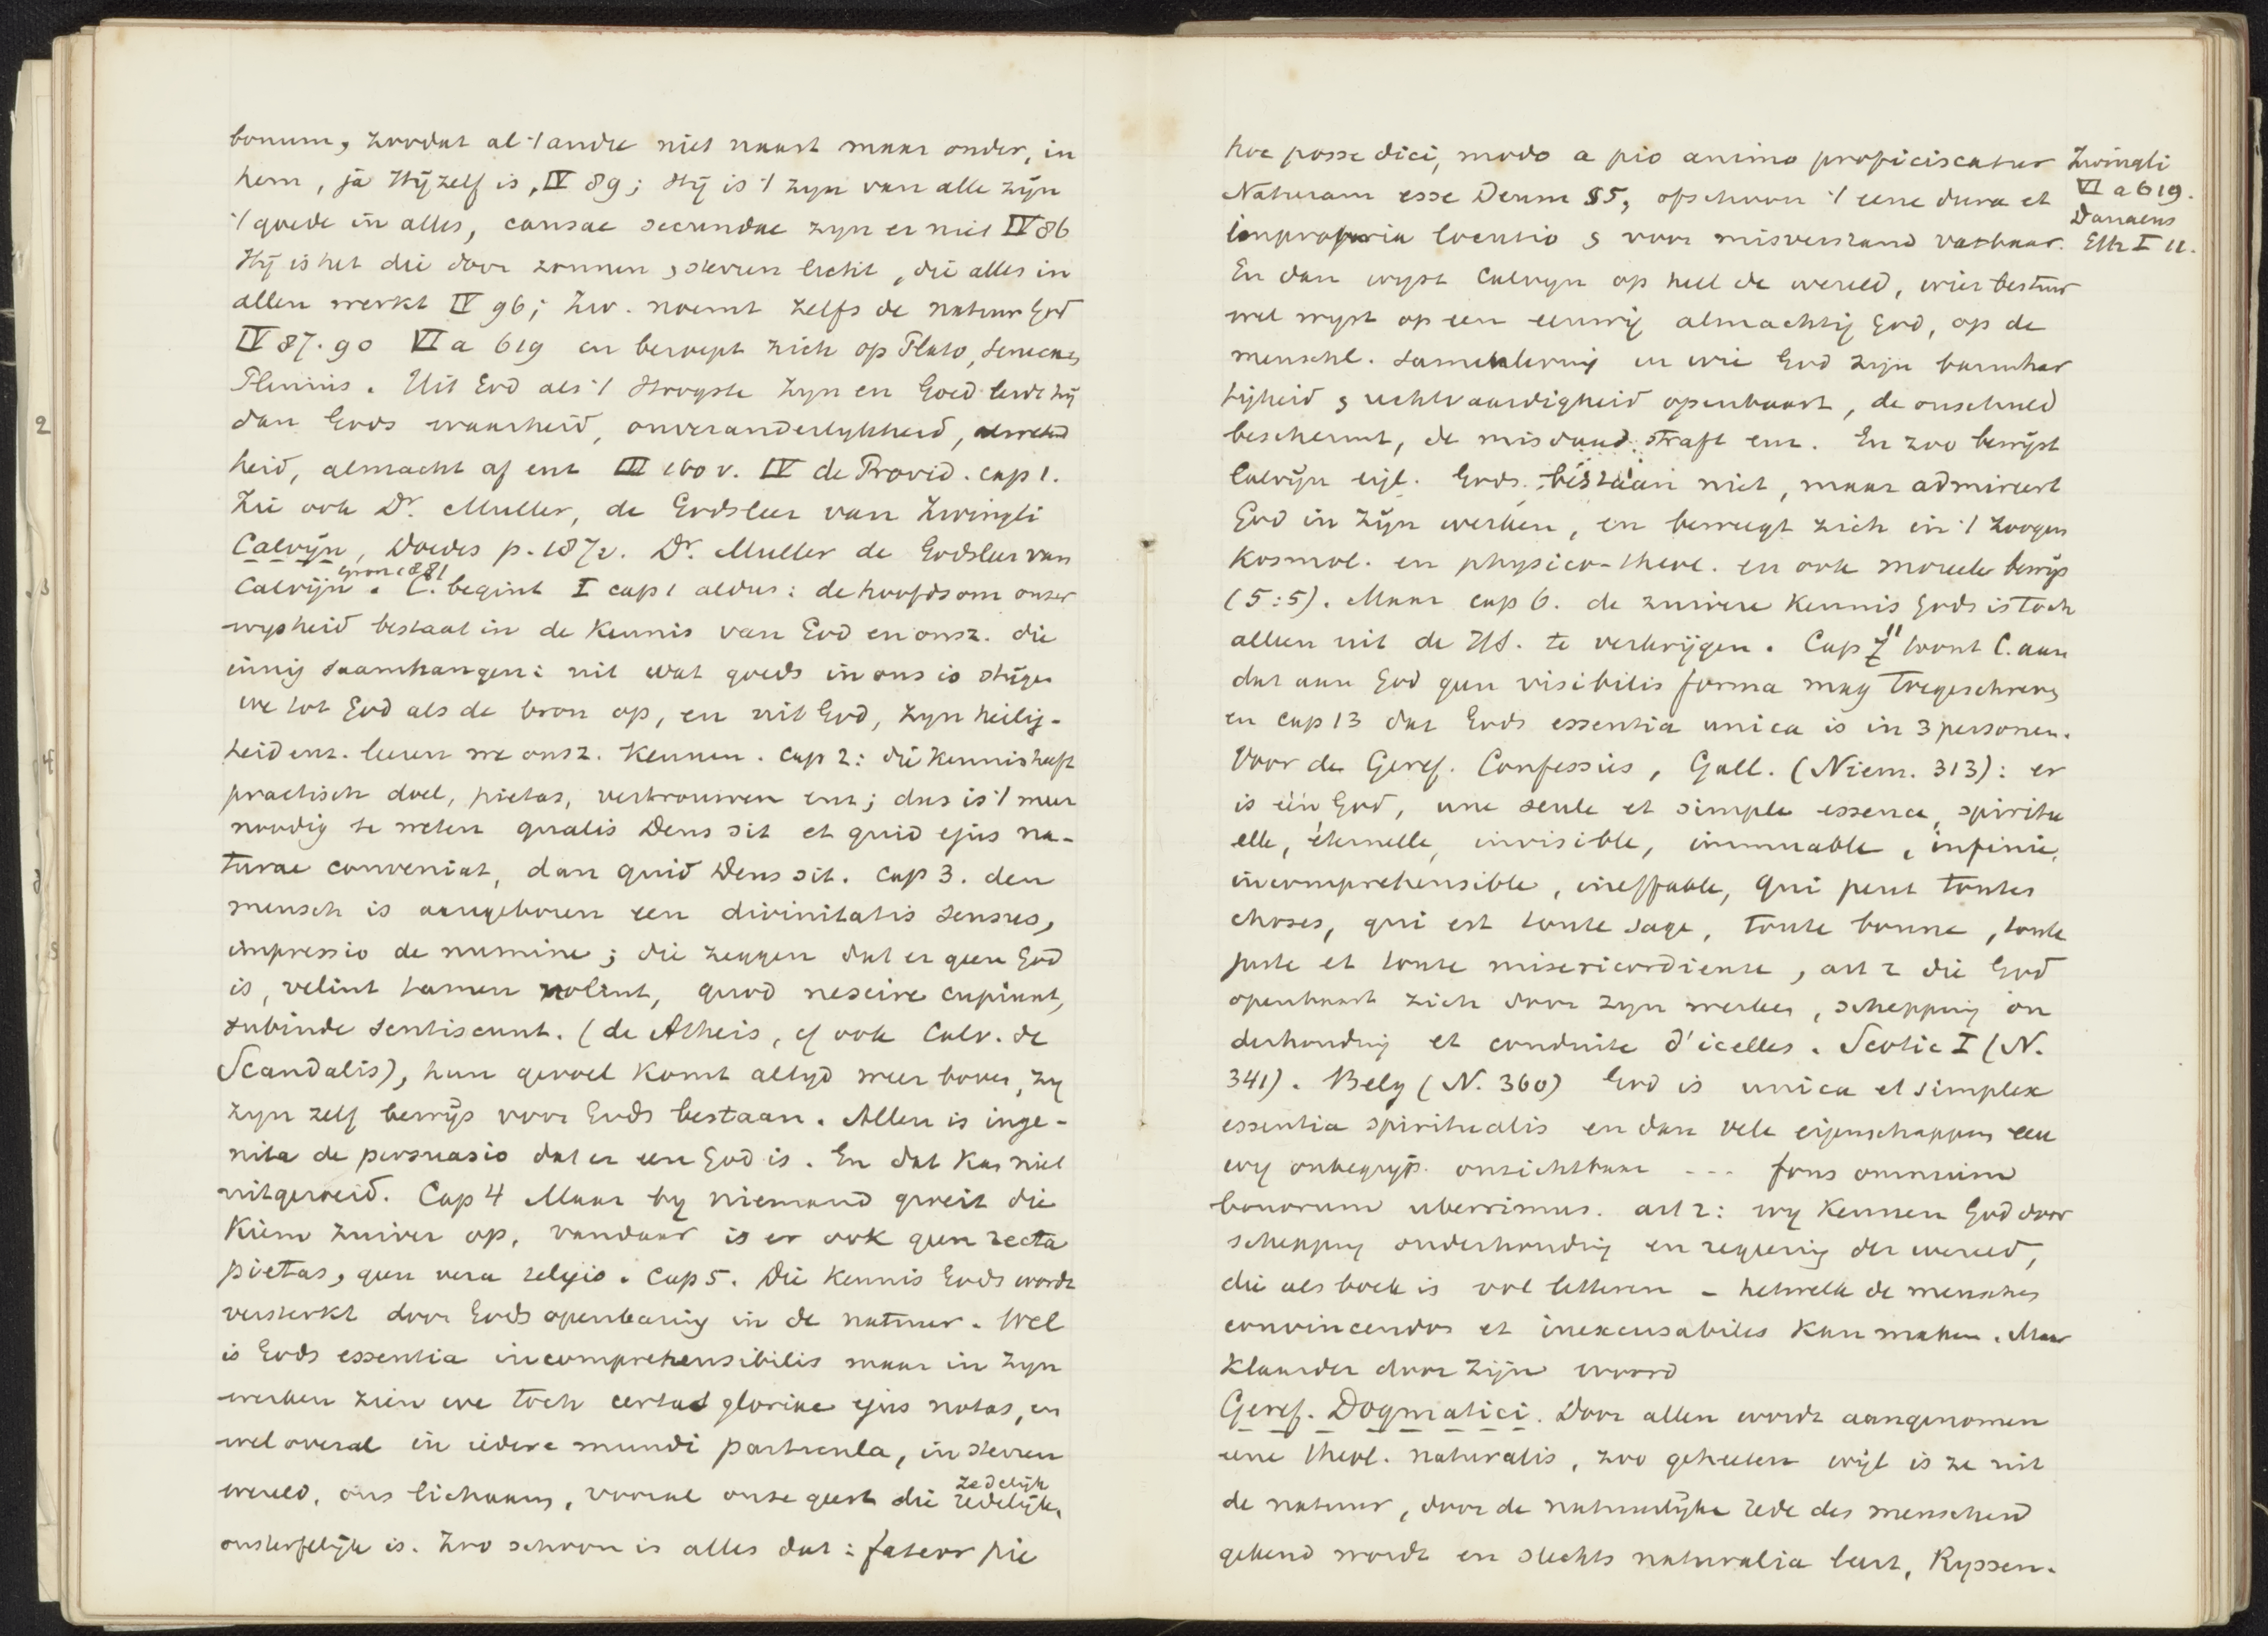 bonum, zoodat al 't andre niet naast maar onder, in
hem, ja Hij zelf is, IV 89; Hij is 't zyn van alle zijn
't goede in alles, causae secundae zyn er niet IV 86
Hij is het die door zonnen, sterren licht, die alles in
allen werkt IV 96; Zw. noemt zelfs de natuur God
IV 87. 90 VI a 619 en beroept zich op Plato, Seneca,
Plinius. Uit God als 't Hoogste Zyn en Goed leidt hij
dan Gods waarheid, onveranderlykheid, alwetend
heid, almacht af enz III 160 v. IV de Provid. cap 1.
Zie ook Dr. Muller, de Godsleer van Zwingli
Calvijn, Doedes p. 187v. Dr. Muller de Godsleer van
Calvijn Gron 1881. C. begint I cap 1 aldus: de hoofdsom onzer
wysheid bestaat in de Kennis van God en onsz. die
innig saamhangen: uit wat goeds in ons is stijgen
we tot God als de bron op, en uit God, zyn heilig-
heid enz. leeren we onsz. Kennen. Cap 2: die Kennis heeft
practisch doel, pietas, vertrouwen enz; dus is 't meer
noodig te weten qualis Deus sit et quid ejus na-
turae conveniat, dan quid Deus sit. Cap 3. den
mensch is aangeboren een divinitatis sensus,
impressio de numine; die zeggen dat er geen God
is, velint tamen nolint, quod nescire cupiunt,
subinde sentiscunt. (de Atheis, cf ook Calv. de
Scandalis), hun gevoel Komt altyd weer boven, zy
zyn zelf bewijs voor Gods bestaan. Allen is inge-
nita de persuasio dat er een God is. En dat Kan niet
uitgeroeid. Cap 4 Maar by niemand groeit die
Kiem zuiver op, vandaar is er ook geen recta
pietas, geen vera religio. Cap 5. Die Kennis Gods wordt
versterkt door Gods openbaring in de natuur. Wel
is Gods essentia incomprehensibilis maar in zyn
werken zien we toch certas gloriae ejus notas, en
wel overal in iedere mundi particula, in sterren
wereld, ons lichaam, vooral onze geest die zedelijk redelijk,
onsterfelijk is. Zoo schoon is alles dat: fateor pie
hoc posse dici, modo a pio animo proficiscatur
Naturam esse Deum §5, ofschoon 't eene dura et
impropria locutio & voor misverstand vatbaar.
En dan wyst Calvyn op heel de wereld, wier bestuur
wel wyst op een eeuwig almachtig God, op de
menschl. samenleving en wie God zijn barmhar
tigheid & rechtvaardigheid openbaart, de onschuld
beschermt, de misdaad straft enz. En zoo bewijst
Calvijn eigl. Gods bestaan niet, maar admireert
God in zijn werken, en beweegt zich in 't zoogen
Kosmol. en physico-theol. en ook moreele bewijs
(5:5). Maar cap 6. de zuivere Kennis Gods is toch
alleen uit de HS. te verkrijgen. Cap 11 toont C. aan
dat aan God geen visibilis forma mag toegeschreven
en cap 13 dat Gods essentia unica is in 3 personen.
Voor de Geref. Confessies, Gall. (Niem. 313): er
is één God, une seule et simple essence, spiritu
elle, éternelle, invisible, immuable, infinie,
incomprehensible, ineffable, qui peut toutes
choses, qui est toute sage, toute bonne, toute
juste et toute misericordieuse, art 2 die God
openbaart zich door zyn werken, schepping on
derhouding et conduite d'icelles. Scotic I (N.
341). Belg (N. 360) God is unica et simplex
essentia spiritualis en dan vele eigenschappen eeu
wig onbegryp. onzichtbaar --- fons omnium
bonorum uberrimus. art 2: wy Kennen God door
schepping onderhouding en regeering der wereld,
die als boek is vol letteren - hetwelk de menschen
convincendos et inexcusabiles Kan maken. Maar
Klaarder door zijn woord
Geref. Dogmatici. Door allen wordt aangenomen
eene theol. naturalis, zoo geheeten wijl is ze uit
de natuur, door de natuurlijke rede des menschen
gekend wordt en slechts naturalia leert, Ryssen.
Zwingli
VI a 619.
Danaeus
Eth I 11.
2
3
4
5